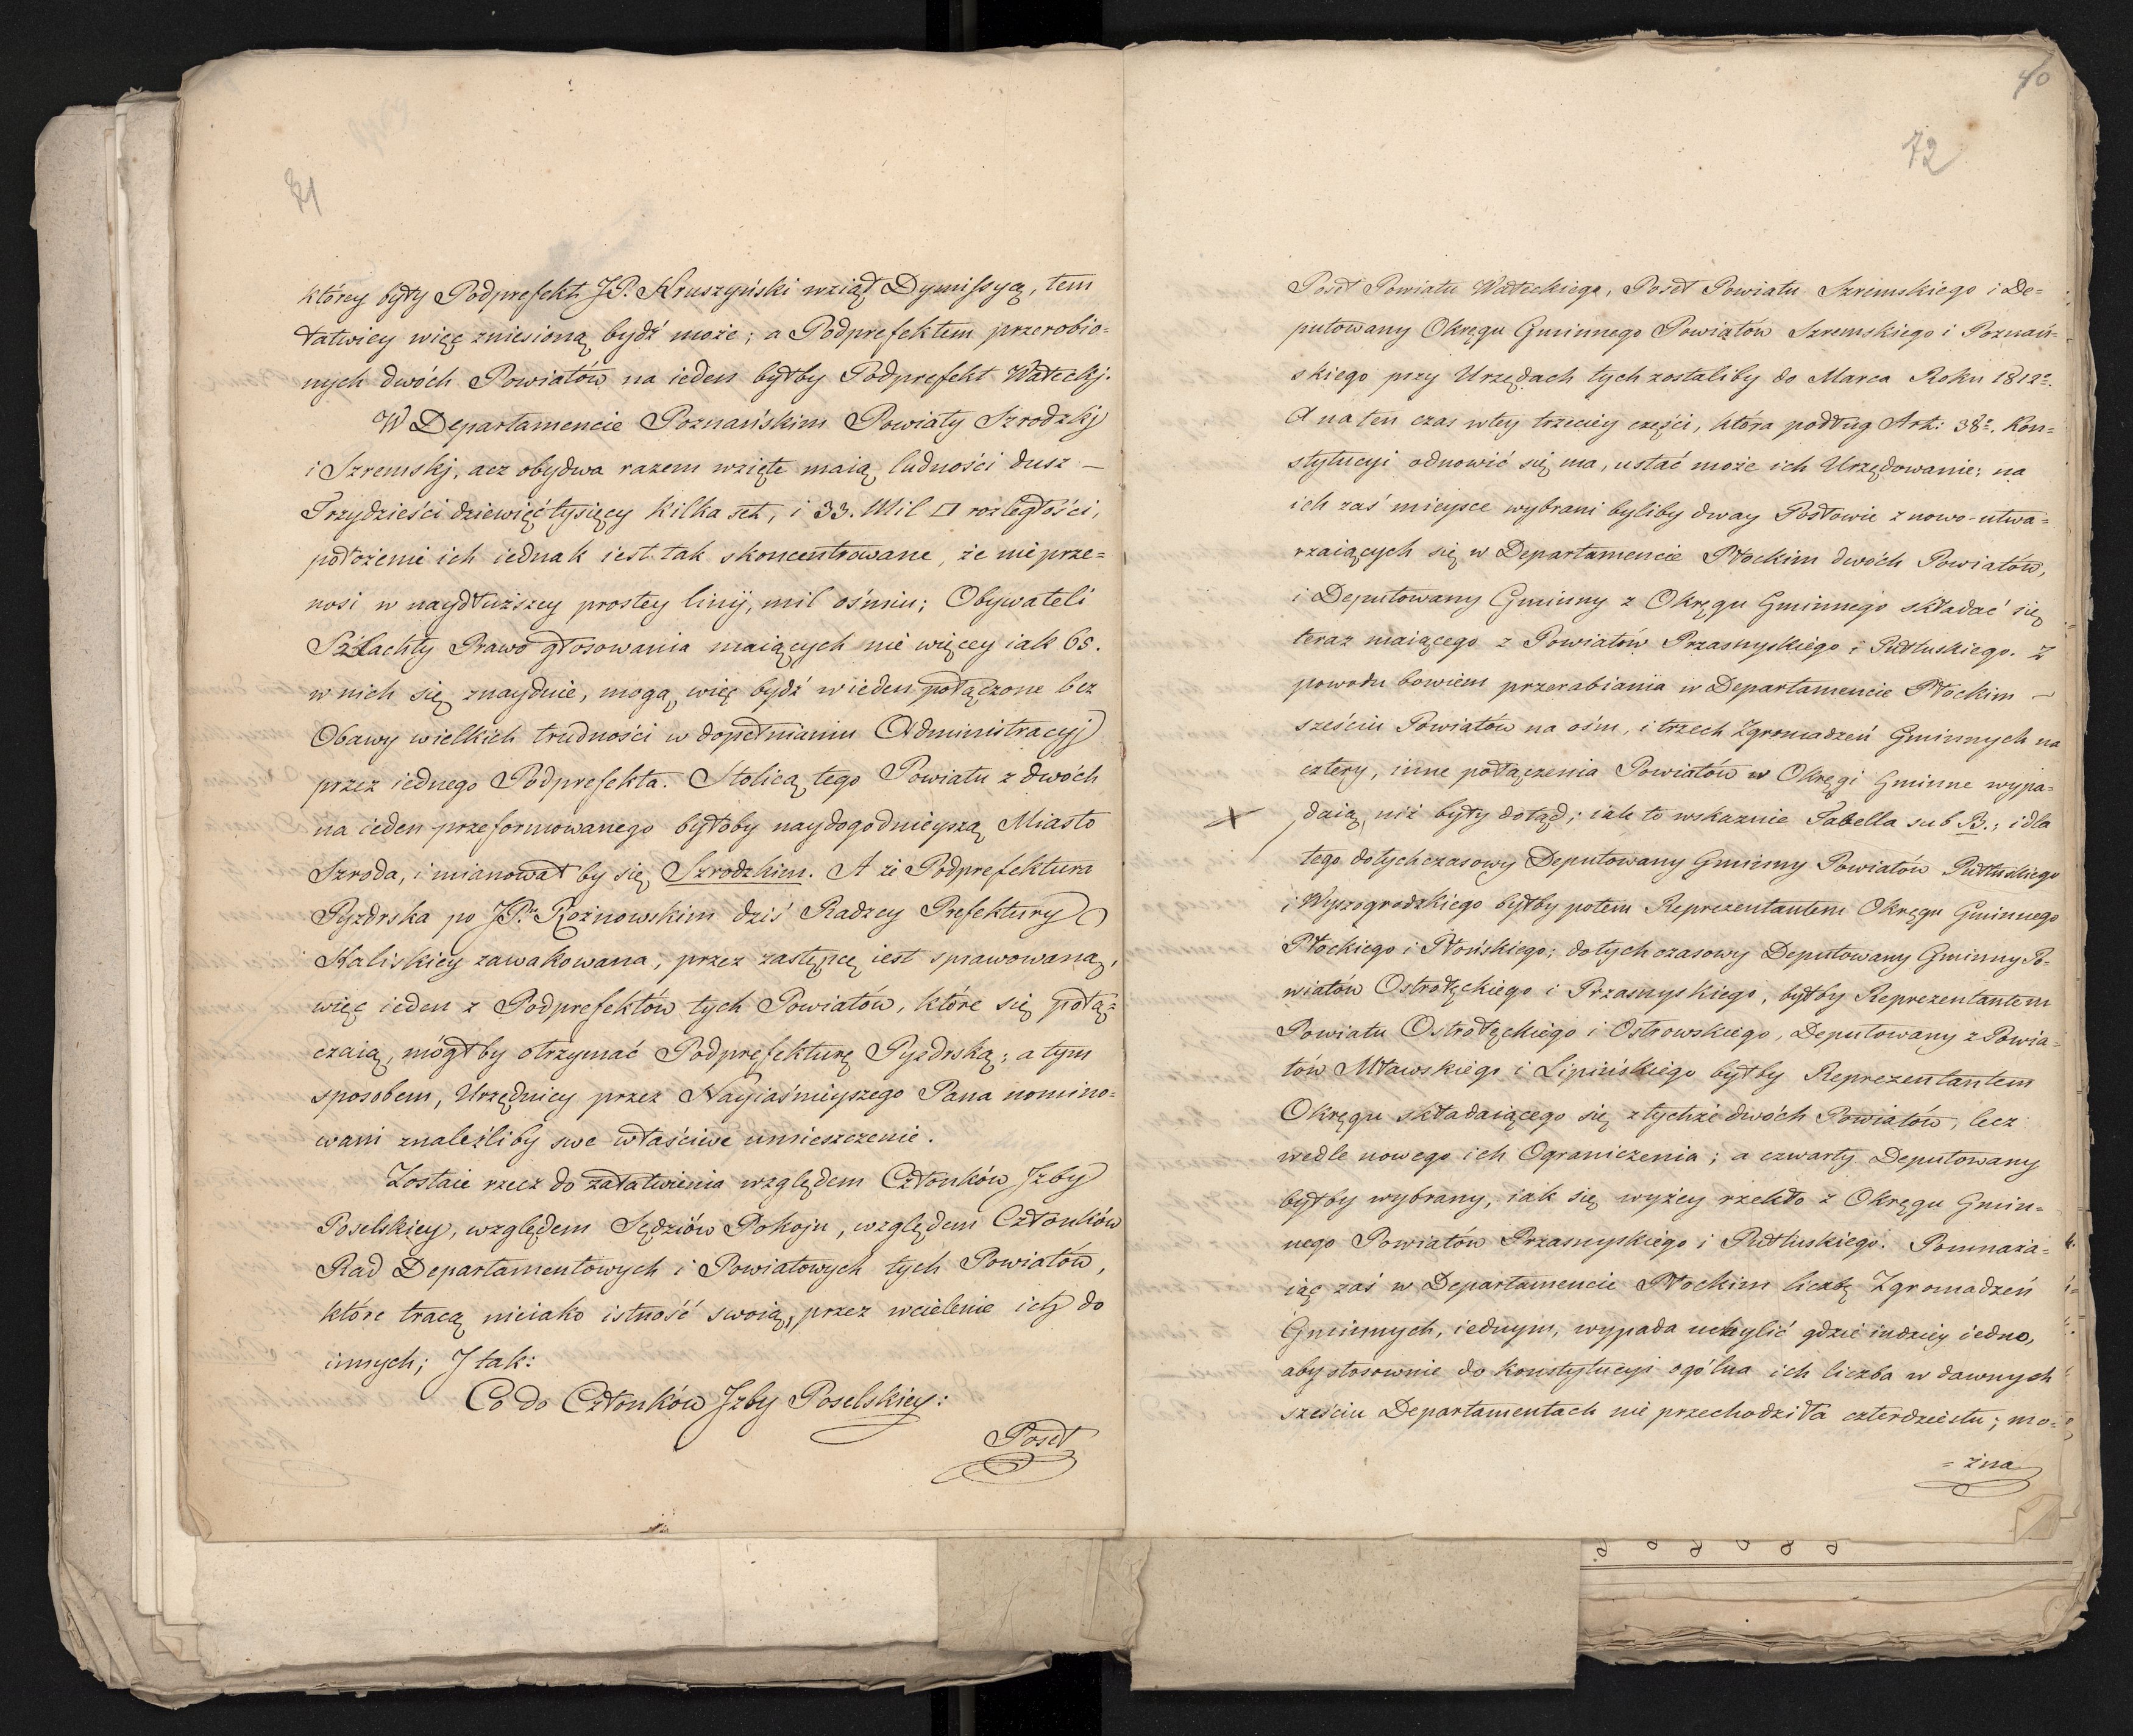 71
którey były Podprefekt JP. Kruszyński wziął Dymissyą, tem
łatwiey więc zniesioną bydź może; a Podprefektem przerobio=
nych dwóch Powiatów na ieden byłby Podprefekt Wałeckj.
W Departamencie Poznańskim Powiaty Szrodzkj
i Szremskj, acz obydwa razem wzięte maią ludności dusz —
Trzydzieści dziewięć tysięcy kilka set, i 33. Mil □ rozległości,
położenie ich iednak iest tak skoncentrowane, że nie prze=
nosi w naydłuższey prostey linij, mil ośmiu; Obywateli
Szlachty Prawo głosowania maiących nie więcey iak 65.
w nich się znayduie, mogą więc bydź w ieden połączone bez
Obawy wielkich trudności w dopełnianiu Administracyj
przez iednego Podprefekta. Stolicą tego Powiatu z dwóch
na ieden przeformowanego byłoby naydogodnieyszą Miasto
Szroda, i mianował by się Szrodzkim. A że Podprefektura
Pyzdrska po JP. Rożnowskim dziś Radzcy Prefektury
Kaliskiey zawakowana, przez zastępcę iest sprawowaną,
więc ieden z Podprefektów tych Powiatów, które się połą=
czaią, mógłby otrzymać Podprefekturę Pyzdrską; a tym
sposobem, Urzędnicy przez Nayiaśnieyszego Pana nomino=
wani znaleźliby swe właściwe umieszczenie.
Zostaie rzecz do załatwienia względem Członków Jzby
Poselskiey, względem Sędziów Pokoju, względem Członków
Rad Departamentowych i Powiatowych tych Powiatów,
które tracą nieiako istność swoią, przez wcielenie ich do
innych; J tak:
Co do Członków Jzby Poselskiey:
Poseł
40
72
Poseł Powiatu Wałeckiego, Poseł Powiatu Szremskiego i De=
putowany Okręgu Gminnego Powiatów Szremskiego i Poznań=
skiego przy Urzędach tych zostaliby do Marca Roku 1812º.
A na ten czas w tey trzeciey części, która podług Art: 38º. Kon=
stytucyi odnowić się ma, ustać może ich Urzędowanie; na
ich zaś mieysce wybrani byliby dway Posłowie z nowo-utwa=
rzaiących się w Departamencie Płockim dwóch Powiatów,
i Deputowany Gminny z Okręgu Gminnego składać się
teraz maiącego z Powiatów Przasnyskiego i Pułtuskiego. Z
powodu bowiem przerabiania w Departamencie Płockim —
sześciu Powiatów na ośm, i trzech Zgromadzeń Gminnych na
cztery, inne połączenia Powiatów w Okręgi Gminne wypa=
daią, niż były dotąd; iak to wskazuie Tabella sub B.; i dla
tego dotychczasowy Deputowany Gminny Powiatów Pułtuskiego
i Wyszogrodzkiego byłby potem Reprezentantem Okręgu Gminnego
Płockiego i Płońskiego; dotychczasowy Deputowany Gminny Po=
wiatów Ostrołęckiego i Przasnyskiego, byłby Reprezentantem
Powiatu Ostrołęckiego i Ostrowskiego, Deputowany z Powia=
tów Mławskiego i Lipińskiego byłby Reprezentantem
Okręgu składaiącego się z tychże dwóch Powiatów, lecz
wedle nowego ich Ograniczenia; a czwarty Deputowany
byłby wybrany, iak się wyżey rzekło z Okręgu Gmin=
nego Powiatów Przasnyskiego i Pułtuskiego. Pomnaża=
iąc zaś w Departamencie Płockim liczbę Zgromadzeń
Gminnych, iednym, wypada uchylić gdzie indziey iedno,
aby stosownie do Konstytucyi ogólna ich liczba w dawnych
sześciu Departamentach nie przechodziła czterdziestu; mo=
=żna